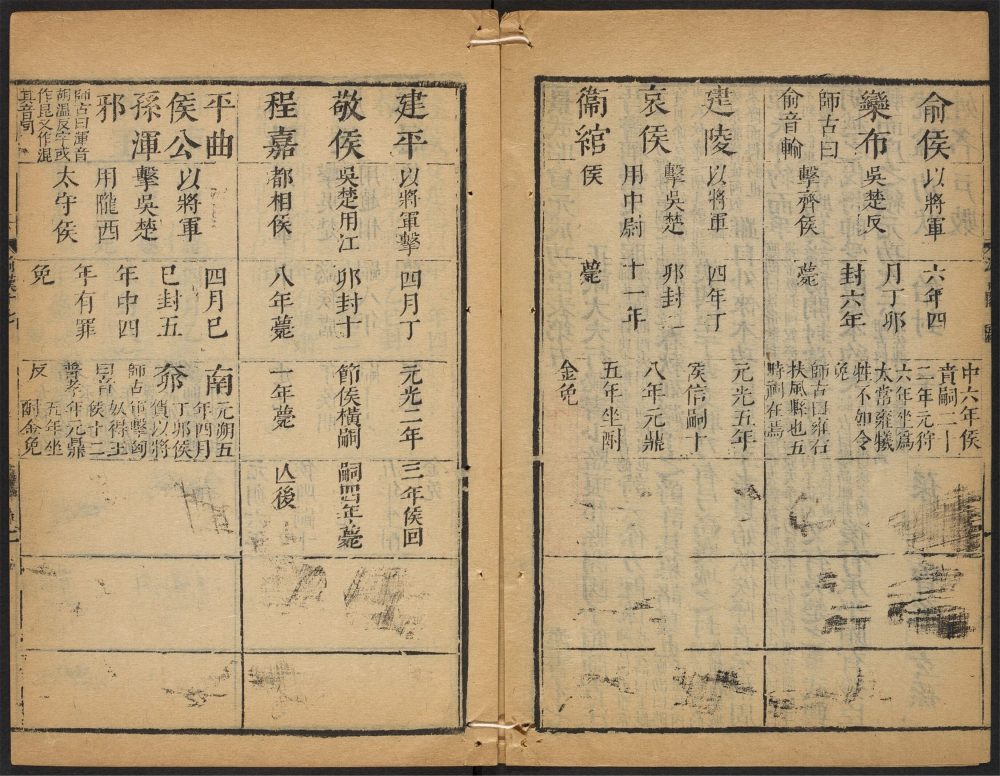 俞侯
欒布
師古曰
俞音輸
以將軍
吳楚反
擊齊侯
六年四
月丁卯
封六年
薨
中六年侯
賁嗣二十
二年元狩
六年坐爲
太常雍犧
牲不如令
免
師古曰雍右
扶風縣也五
畤祠在焉
建陵
哀侯
衞綰
以將軍
擊吳楚
用中尉
侯
四年丁
卯封
十一年
薨
元光五年
侯信嗣十
八年元鼎
五年坐酎
金免
建平
敬侯
程嘉
以將軍擊
吳楚用江
都相侯
四月丁
卯封十
八年薨
元光二年
節侯橫嗣
一年薨
三年侯回
嗣四年薨
亡後
平曲
侯公
孫渾
邪
師古曰渾音
胡溫反字或
作昆又作混
其音同
以將軍
擊吳楚
用隴西
太守侯
四月己
巳封五
年中四
年有罪
免
南
奅
師古
曰音
普孝
反
元朔五
年四月
丁卯侯
賀以將
軍擊匈
奴得王
侯十二
年元鼎
五年坐
酎金免